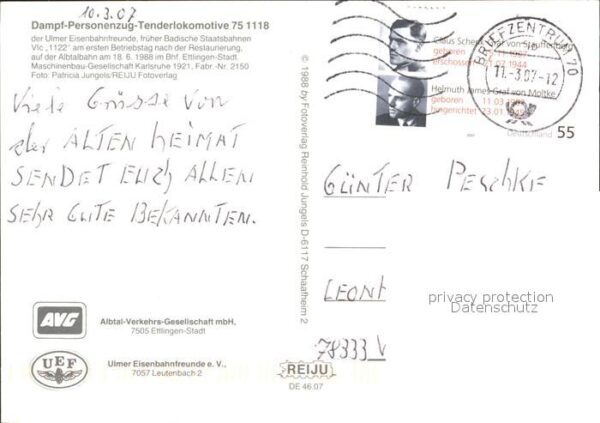 10.3.07
Dampf-Personenzug-Tenderlokomotive 75 1118
der Ulmer Eisenbahnfreunde, früher Badische Staatsbahnen
VIc „1122" am ersten Betriebstag nach der Restaurierung,
auf der Albtalbahn am 18. 6. 1988 im Bhf. Ettlingen-Stadt.
Maschinenbau-Gesellschaft Karlsruhe 1921, Fabr.-Nr. 2150
Foto: Patricia Jungels/REIJU Fotoverlag
Viele Grüsse von
der ALTEN HEIMAT
SENDET EUCH ALLEN
SEHR GUTE BEKANNTEN.
AVG
Albtal-Verkehrs-Gesellschaft mbH.
7505 Ettlingen-Stadt
UEF
Ulmer Eisenbahnfreunde e. V.,
7057 Leutenbach 2
© 1988 by Fotoverlag Reinhold Jungels D-6117 Schaafheim 2
REIJU
DE 46.07
Claus Schenk Graf von Stauffenberg
geboren 15.11.1907
erschossen 20.07.1944
Helmuth James Graf von Moltke
geboren 11.03.1907
hingerichtet 23.01.1945
Deutschland 55
BRIEFZENTRUM 70
11.-3.07-12
GÜNTER PESCHKE
LEONI
78333 V
privacy protection
Datenschutz